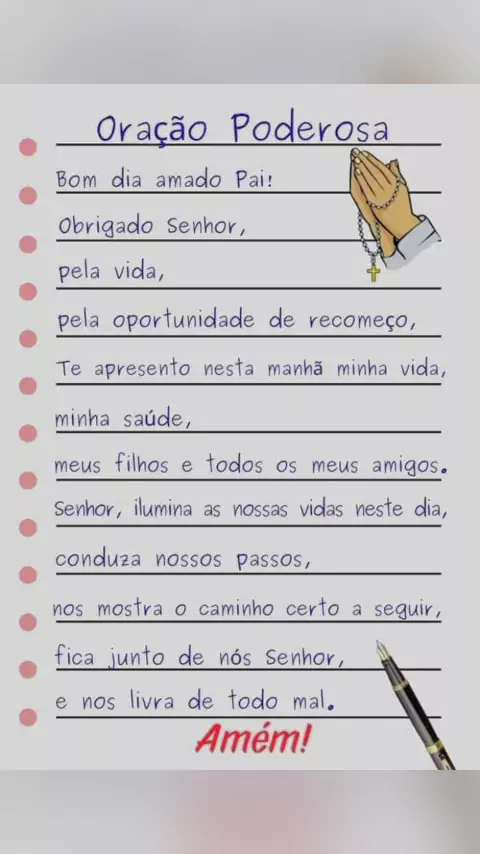 Oração Poderosa
Bom dia amado Pai!
Obrigado Senhor,
pela vida,
pela oportunidade de recomeço,
Te apresento nesta manhã minha vida,
minha saúde,
meus filhos e todos os meus amigos.
Senhor, ilumina as nossas vidas neste dia,
conduza nossos passos,
nos mostra o caminho certo a seguir,
fica junto de nós Senhor,
e nos livra de todo mal.
Amém!